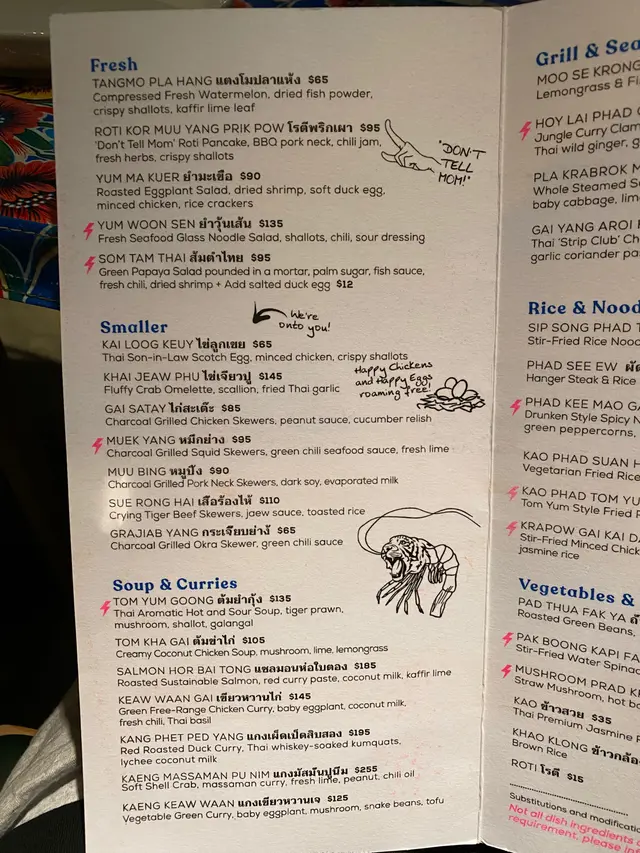 Fresh
TANGMO PLA HANG แตงโมปลาแห้ง $65
Compressed Fresh Watermelon, dried fish powder,
crispy shallots, kaffir lime leaf
ROTI KOR MUU YANG PRIK POW โรตีพริกเผา $95
'Don't Tell Mom' Roti Pancake, BBQ pork neck, chili jam,
fresh herbs, crispy shallots
"DON'T
TELL
MOM!"
YUM MA KUER ยำมะเขือ $90
Roasted Eggplant Salad, dried shrimp, soft duck egg,
minced chicken, rice crackers
YUM WOON SEN ยำวุ้นเส้น $135
Fresh Seafood Glass Noodle Salad, shallots, chili, sour dressing
SOM TAM THAI ส้มตำไทย $95
Green Papaya Salad pounded in a mortar, palm sugar, fish sauce,
fresh chili, dried shrimp + Add salted duck egg $12
We're
onto you!
Smaller
KAI LOOG KEUY ไข่ลูกเขย $65
Thai Son-in-Law Scotch Egg, minced chicken, crispy shallots
KHAI JEAW PHU ไข่เจียวปู $145
Fluffy Crab Omelette, scallion, fried Thai garlic
Happy Chickens
and Happy Eggs
roaming free!
GAI SATAY ไก่สะเต๊ะ $85
Charcoal Grilled Chicken Skewers, peanut sauce, cucumber relish
MUEK YANG หมึกย่าง $95
Charcoal Grilled Squid Skewers, green chili seafood sauce, fresh lime
MUU BING หมูปิ้ง $90
Charcoal Grilled Pork Neck Skewers, dark soy, evaporated milk
SUE RONG HAI เสือร้องไห้ $110
Crying Tiger Beef Skewers, jaew sauce, toasted rice
GRAJIAB YANG กระเจียบย่าง $65
Charcoal Grilled Okra Skewer, green chili sauce
Soup & Curries
TOM YUM GOONG ต้มยำกุ้ง $135
Thai Aromatic Hot and Sour Soup, tiger prawn,
mushroom, shallot, galangal
TOM KHA GAI ต้มข่าไก่ $105
Creamy Coconut Chicken Soup, mushroom, lime, lemongrass
SALMON HOR BAI TONG แซลมอนห่อใบตอง $185
Roasted Sustainable Salmon, red curry paste, coconut milk, kaffir lime
KEAW WAAN GAI เขียวหวานไก่ $145
Green Free-Range Chicken Curry, baby eggplant, coconut milk,
fresh chili, Thai basil
KANG PHET PED YANG แกงเผ็ดเป็ดสับปะรด $195
Red Roasted Duck Curry, Thai whiskey-soaked kumquats,
lychee coconut milk
KAENG MASSAMAN PU NIM แกงมัสมั่นปูนิ่ม $255
Soft Shell Crab, massaman curry, fresh lime, peanut, chili oil
KAENG KEAW WAAN แกงเขียวหวานเจ $125
Vegetable Green Curry, baby eggplant, mushroom, snake beans, tofu
Grill &
MOO SE KRONG
Lemongrass &
HOY LAI PHAD
Jungle Curry Clam
Thai wild ginger,
PLA KRABROK
Whole Steamed
baby cabbage,
GAI YANG AROI
Thai 'Strip Club'
garlic coriander
Rice &
SIP SONG PHAD
Stir-Fried Rice
PHAD SEE EW
Hanger Steak & Rice
PHAD KEE MAO
Drunken Style Spicy
green peppercorns,
KAO PHAD SUAN
Vegetarian Fried Rice
KAO PHAD TOM
Tom Yum Style Fried
KRAPOW GAI KAI
Stir-Fried Minced
jasmine rice
Vegetables &
PAD THUA FAK YA
Roasted Green Beans,
PAK BOONG KAPI
Stir-Fried Water
MUSHROOM PRAD
Straw Mushroom, hot
KAO ข้าวสวย $35
Thai Premium Jasmine
KHAO KLONG ข้าวกล้อง
Brown Rice
ROTI โรตี $15
Substitutions and
Not all dish ingredients
requirement, please